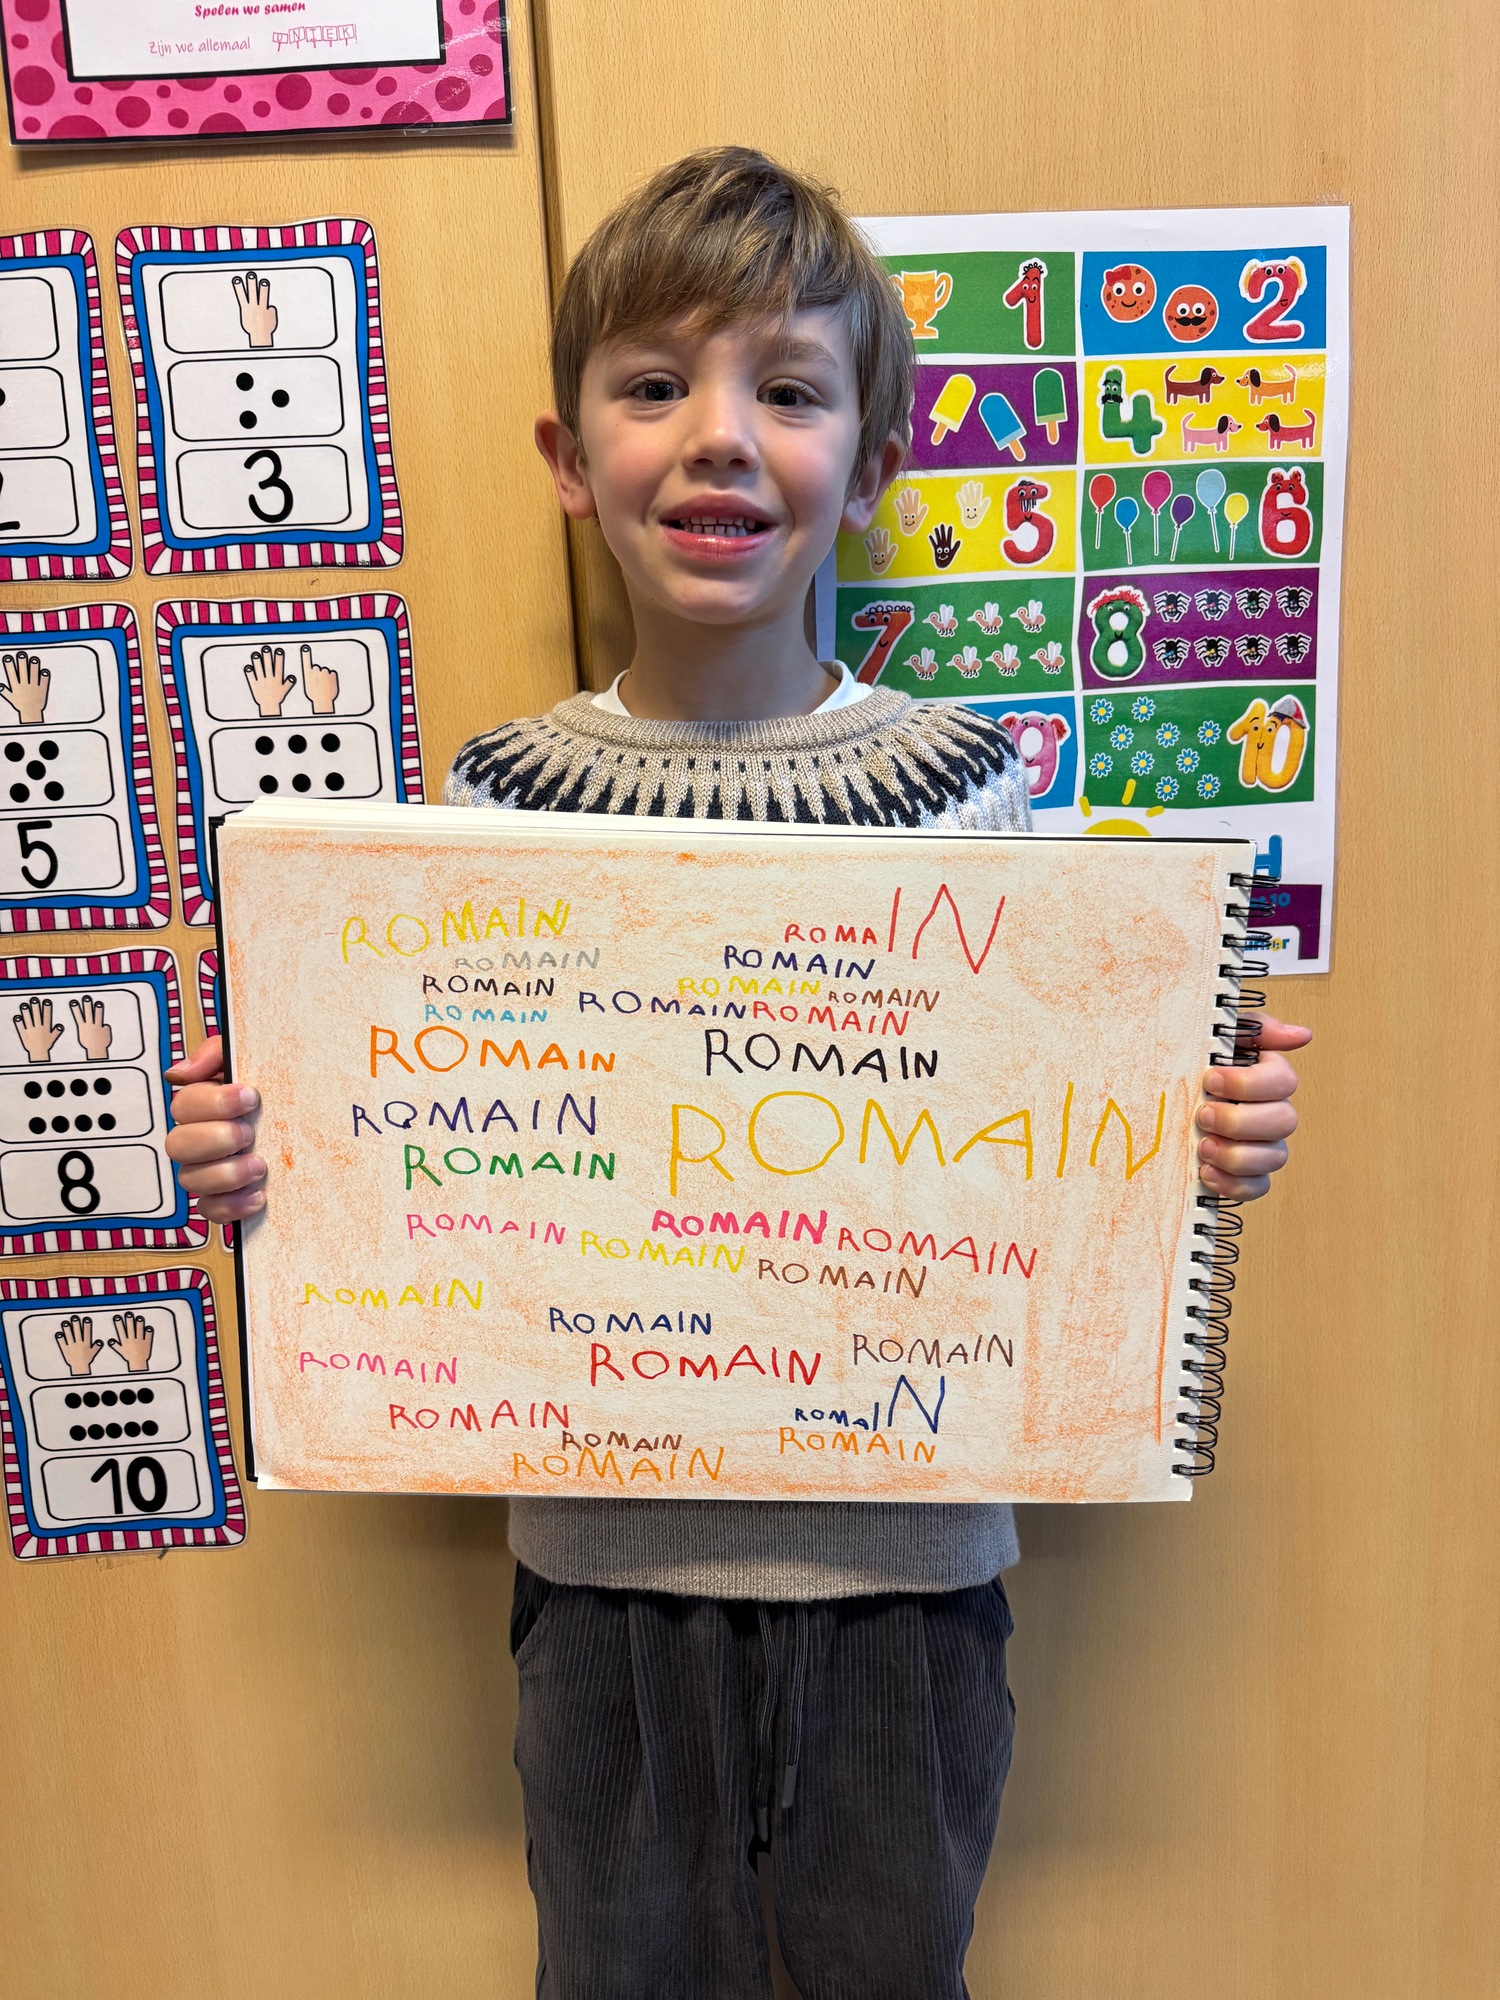 Spelen we samen
Zijn we allemaal UNIEK!
3
5
8
10
1
2
4
5
6
7
8
9
10
ROMAIN
ROMAIN
ROMAIN
ROMAIN
ROMAIN
ROMAIN
ROMAIN ROMAIN
ROMAIN
ROMAIN ROMAIN
ROMAIN
ROMAIN
ROMAIN
ROMAIN
ROMAIN
ROMAIN ROMAIN ROMAIN
ROMAIN ROMAIN
ROMAIN
ROMAIN
ROMAIN
ROMAIN
ROMAIN
ROMAIN
ROMAIN
ROMAIN
ROMAIN
ROMAIN